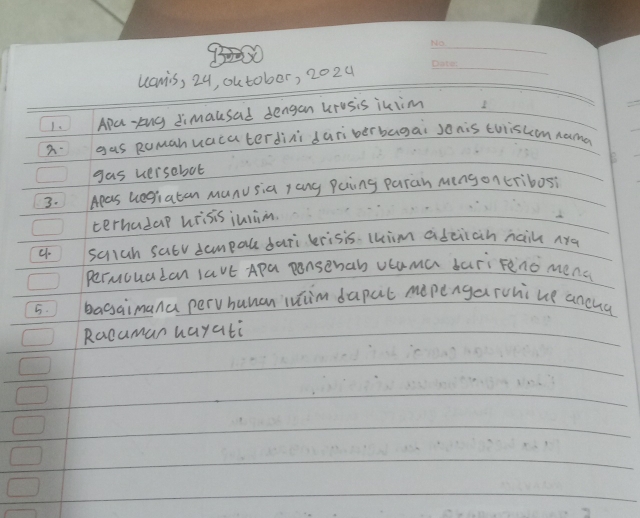 No:
Date:
Kamis, 24, oktober, 2024
1. Apa yang dimaksad dengan krosis iklim
2. gas Rumah kaca terdiri dari berbagai Jenis tuliskan nama
gas kersebot
3. Apas kegiatan manusia yang paling parah mengontribusi
terhadap krisis iklim.
4. salah satu dampak dari krisis iklim adalah naik nya
Permukaan laut Apa penyebab utama dari Feno mena
5. bagaimana perubahan iklim dapat mepengaruhi ke aneka
Ragaman hayati